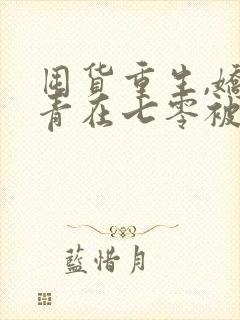 囤货重生,嬌
青在七零被
藍惜月